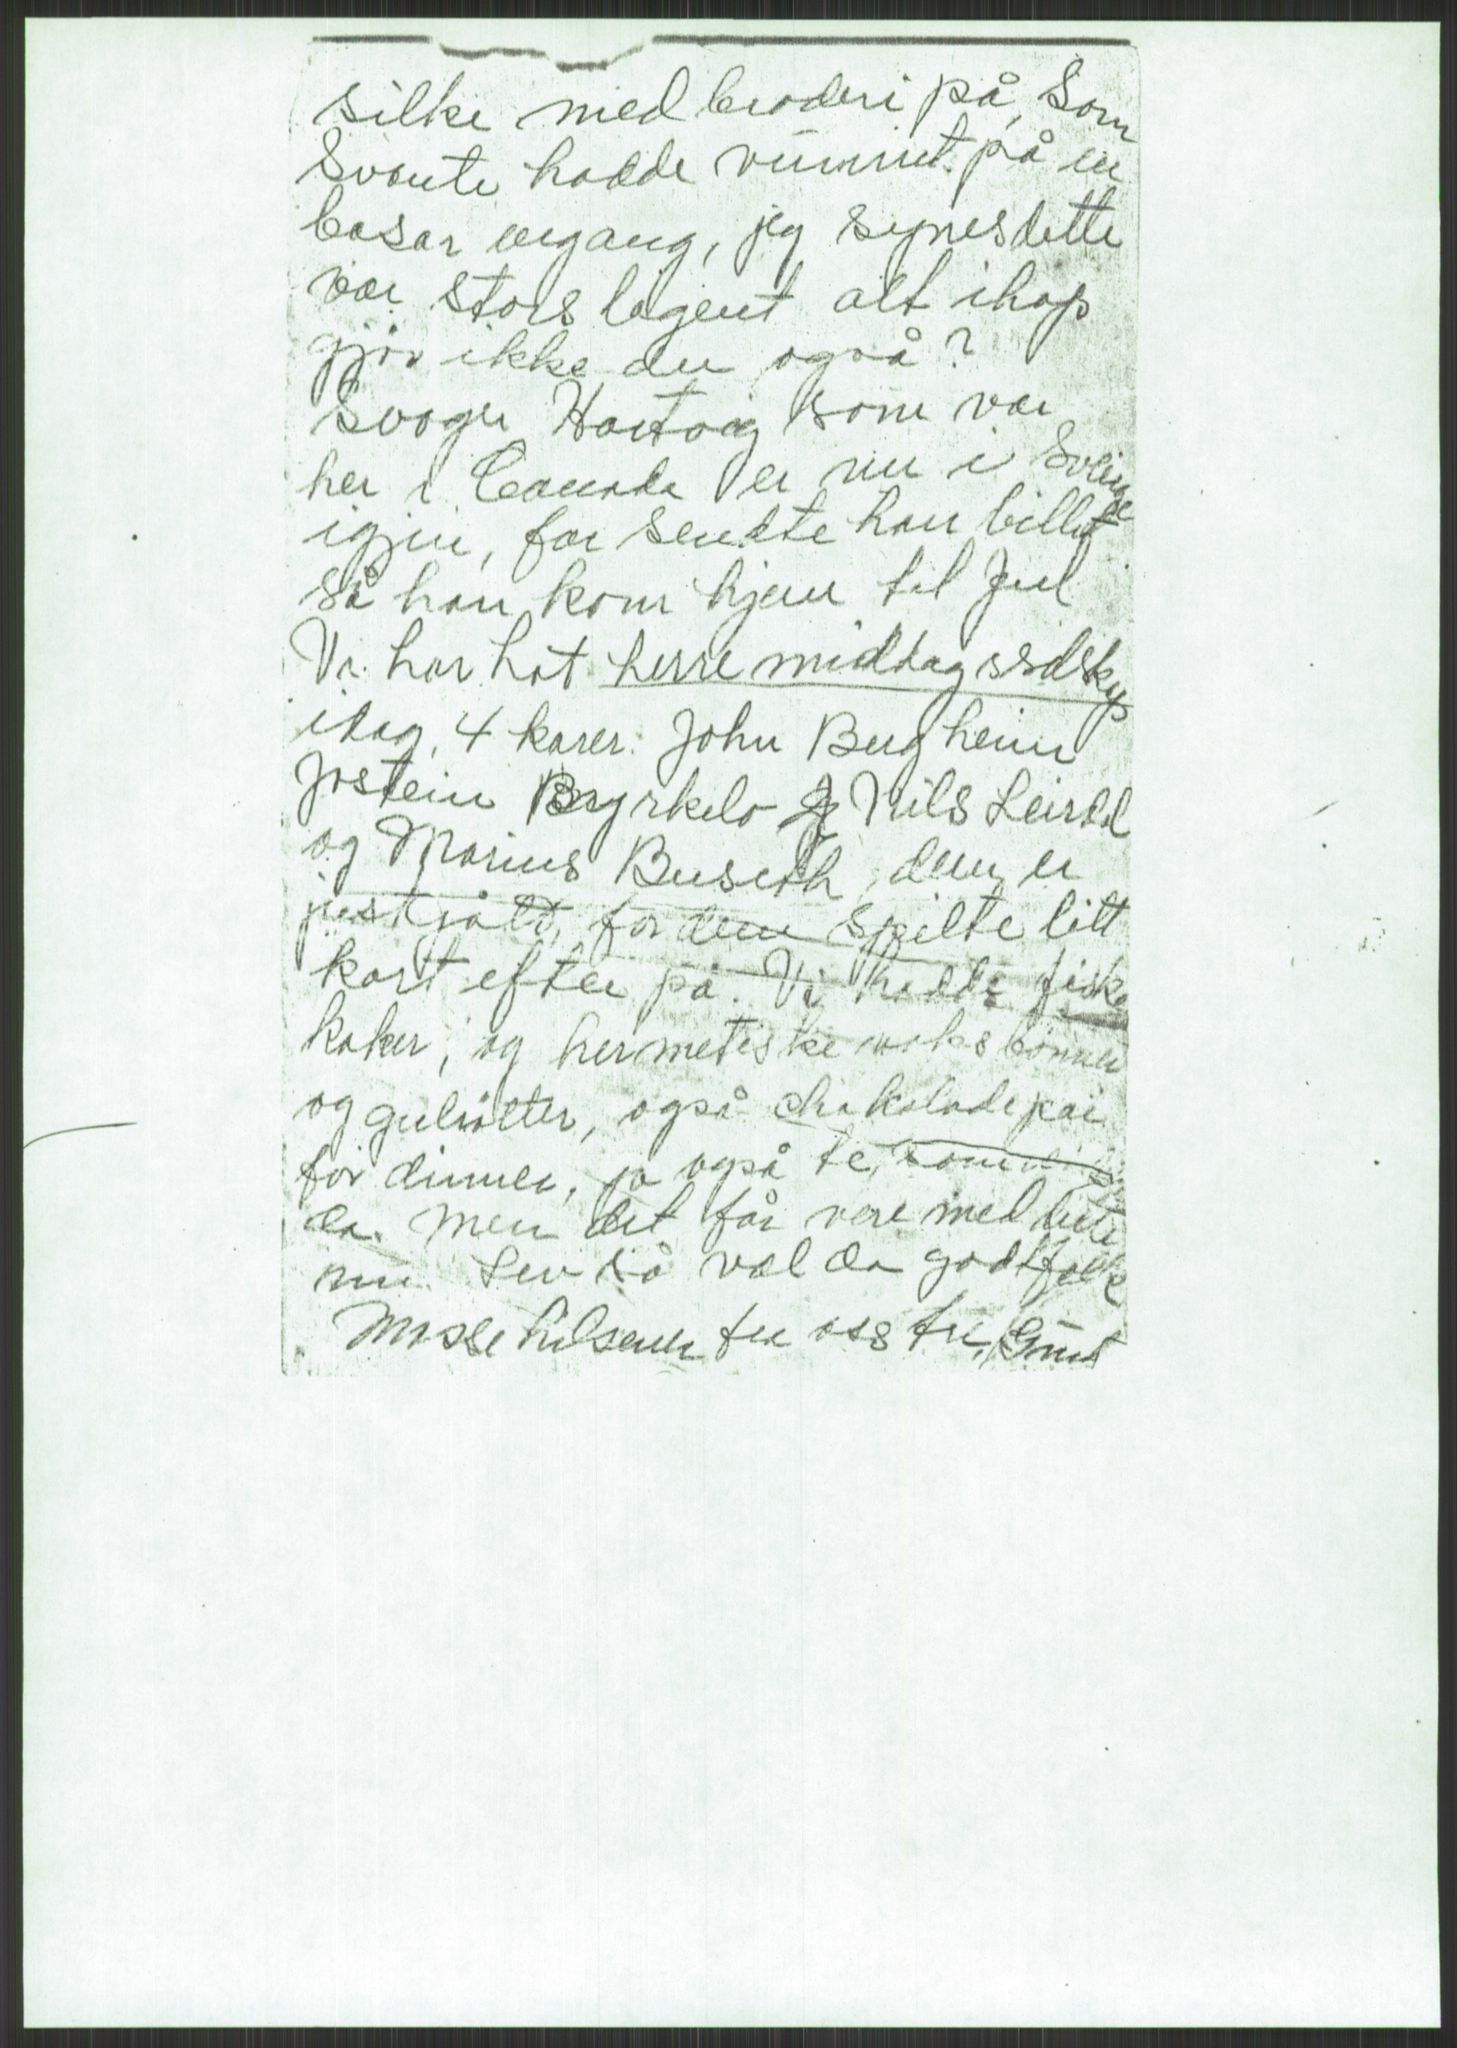 silke med broderi på, som
Svante hadde vunnet på en
basar engang, jeg synes dette
var storslagent alt ihop
gjør ikke du også?
Svoger Hartvig som var
her i Canada er nu i Sverige
igjen, far sendte han billet
så han kom hjem til Jul
Vi har hat herre middagsselskap
idag, 4 karer. John Bergheim
Jostein Byrkelo Nils Leirdal
og Marius Buseth, dem er
just gått, for dem spilte litt
kort efter på. Vi hadde fiske
kaker, og hermetiske voksbønner
og gulrøtter, også chokoladepai
for dinner, ja også te,
da. Men det får vere med dette
nu. Lev så vel da godtfolk
Masse hilsener fra oss tre,